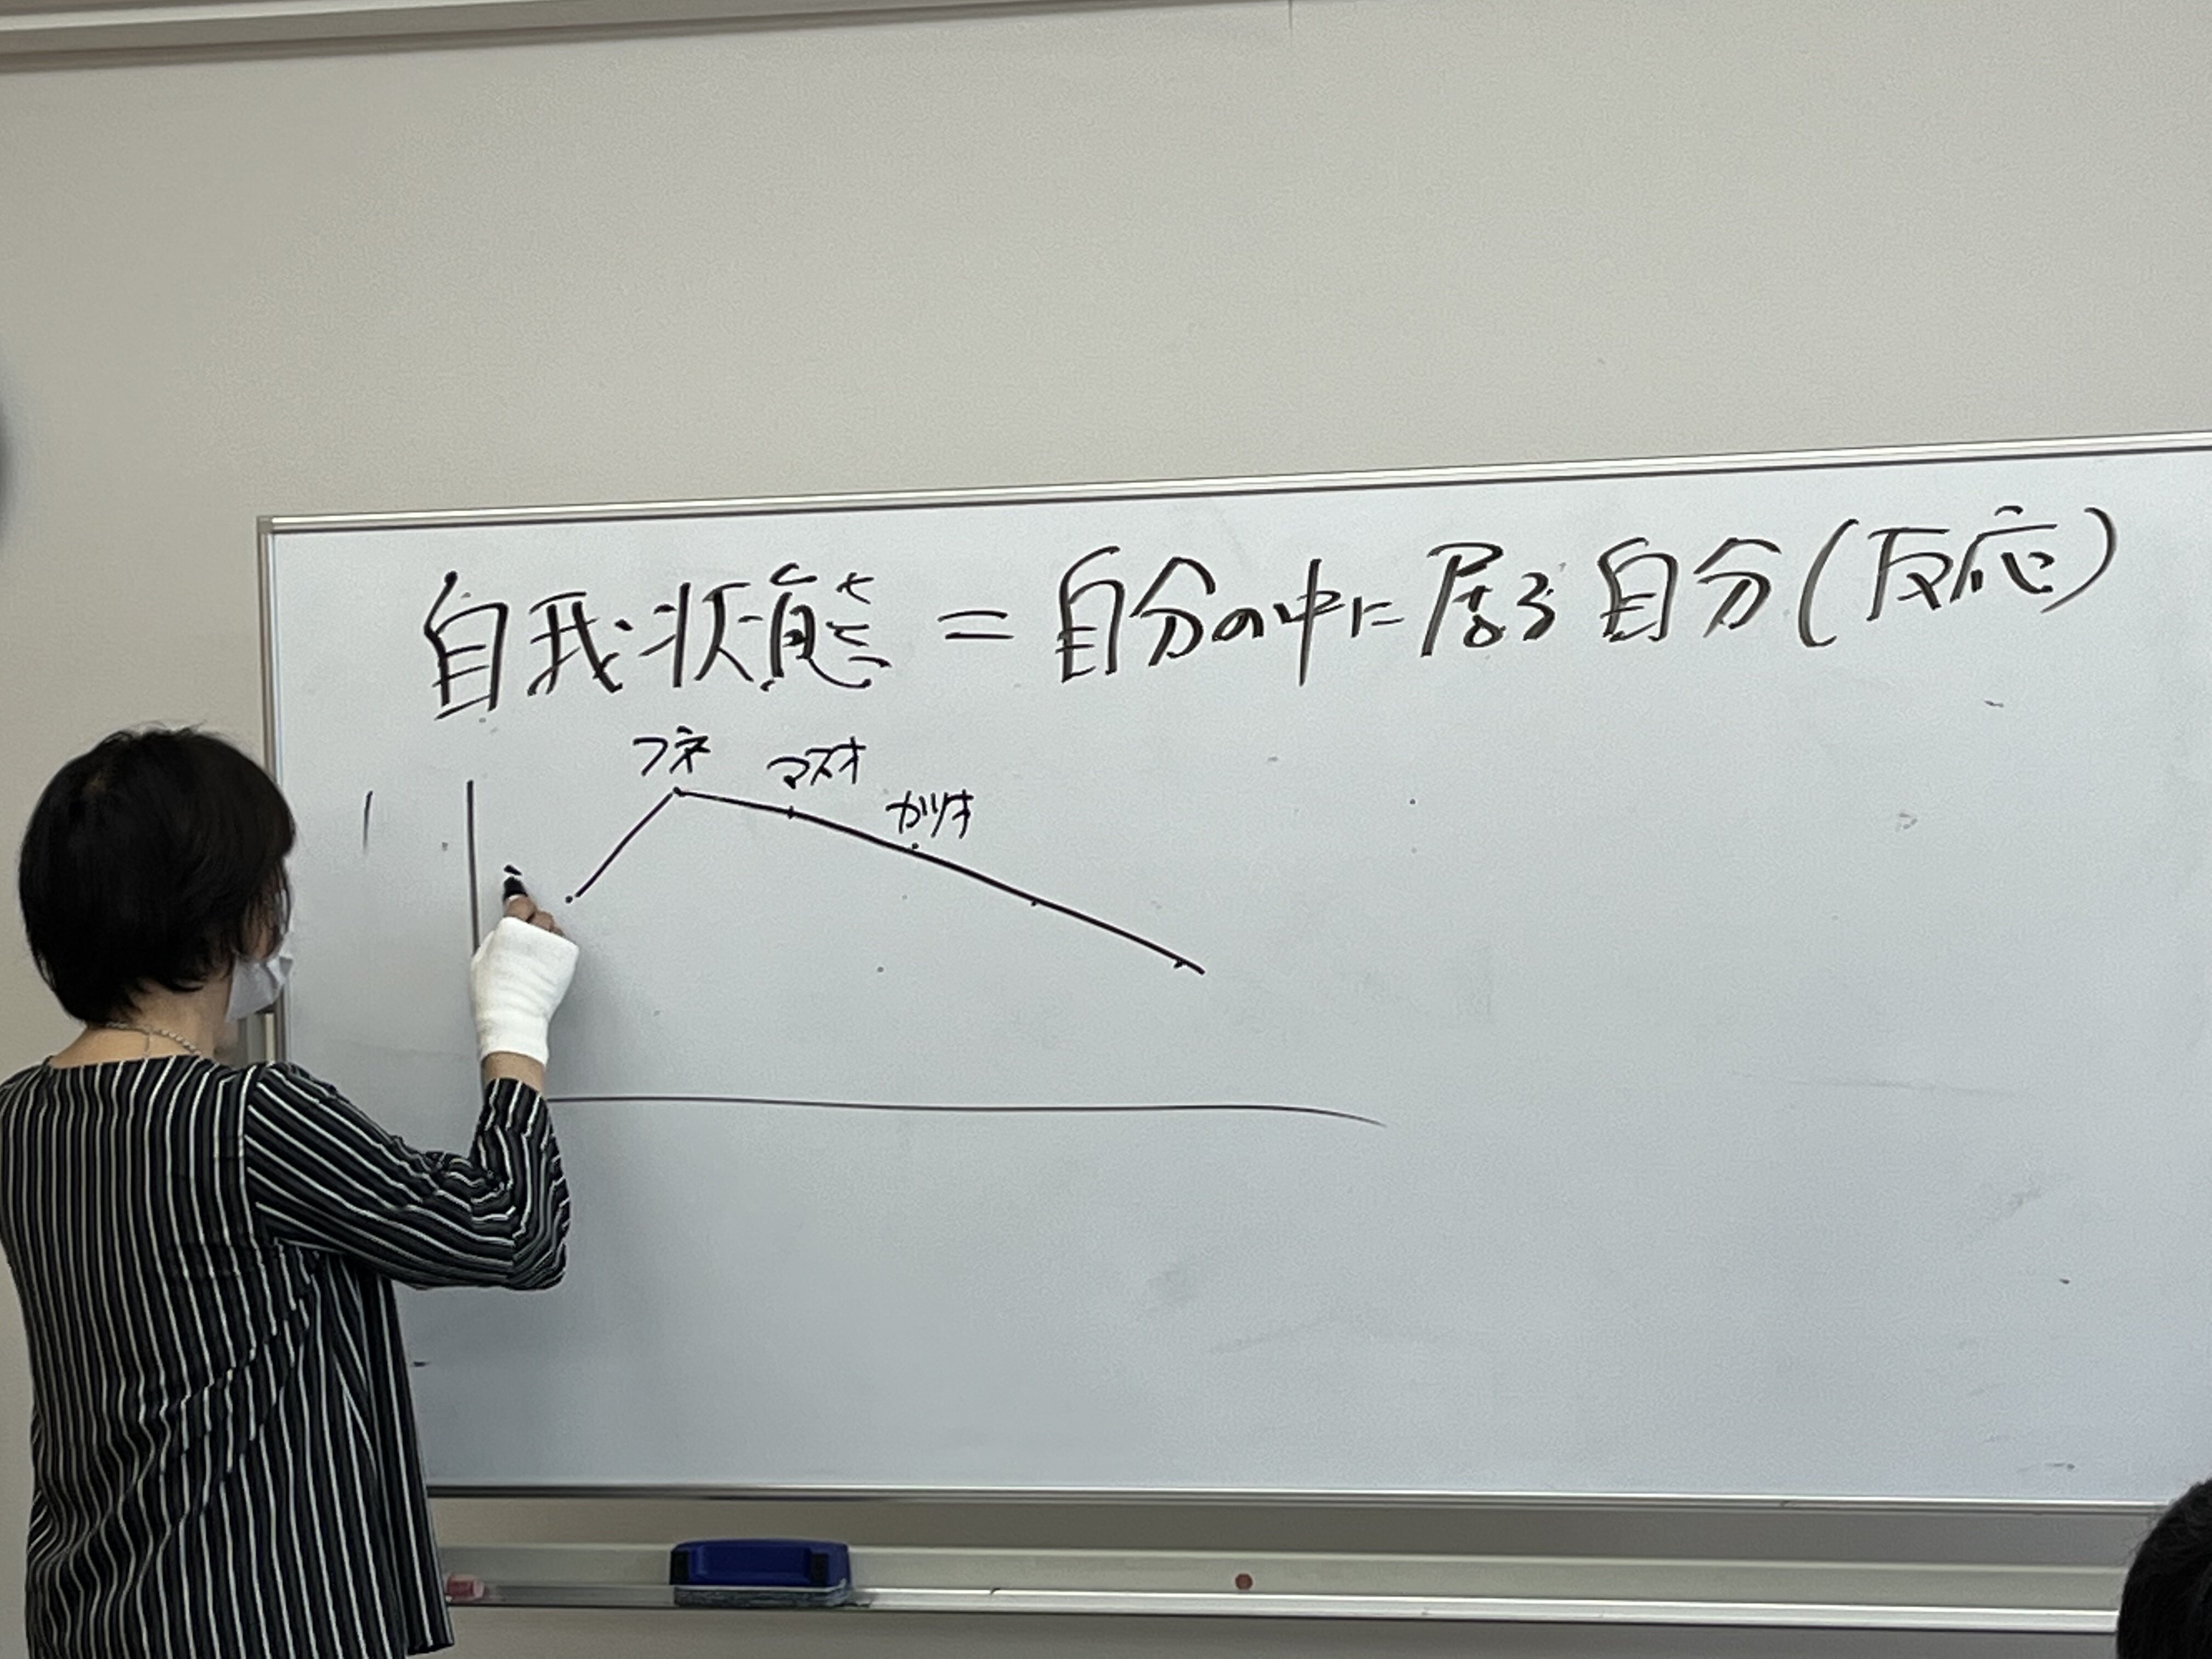 自我状態 = 自分の中に居る自分(反応)
フネ
マスオ
カツオ